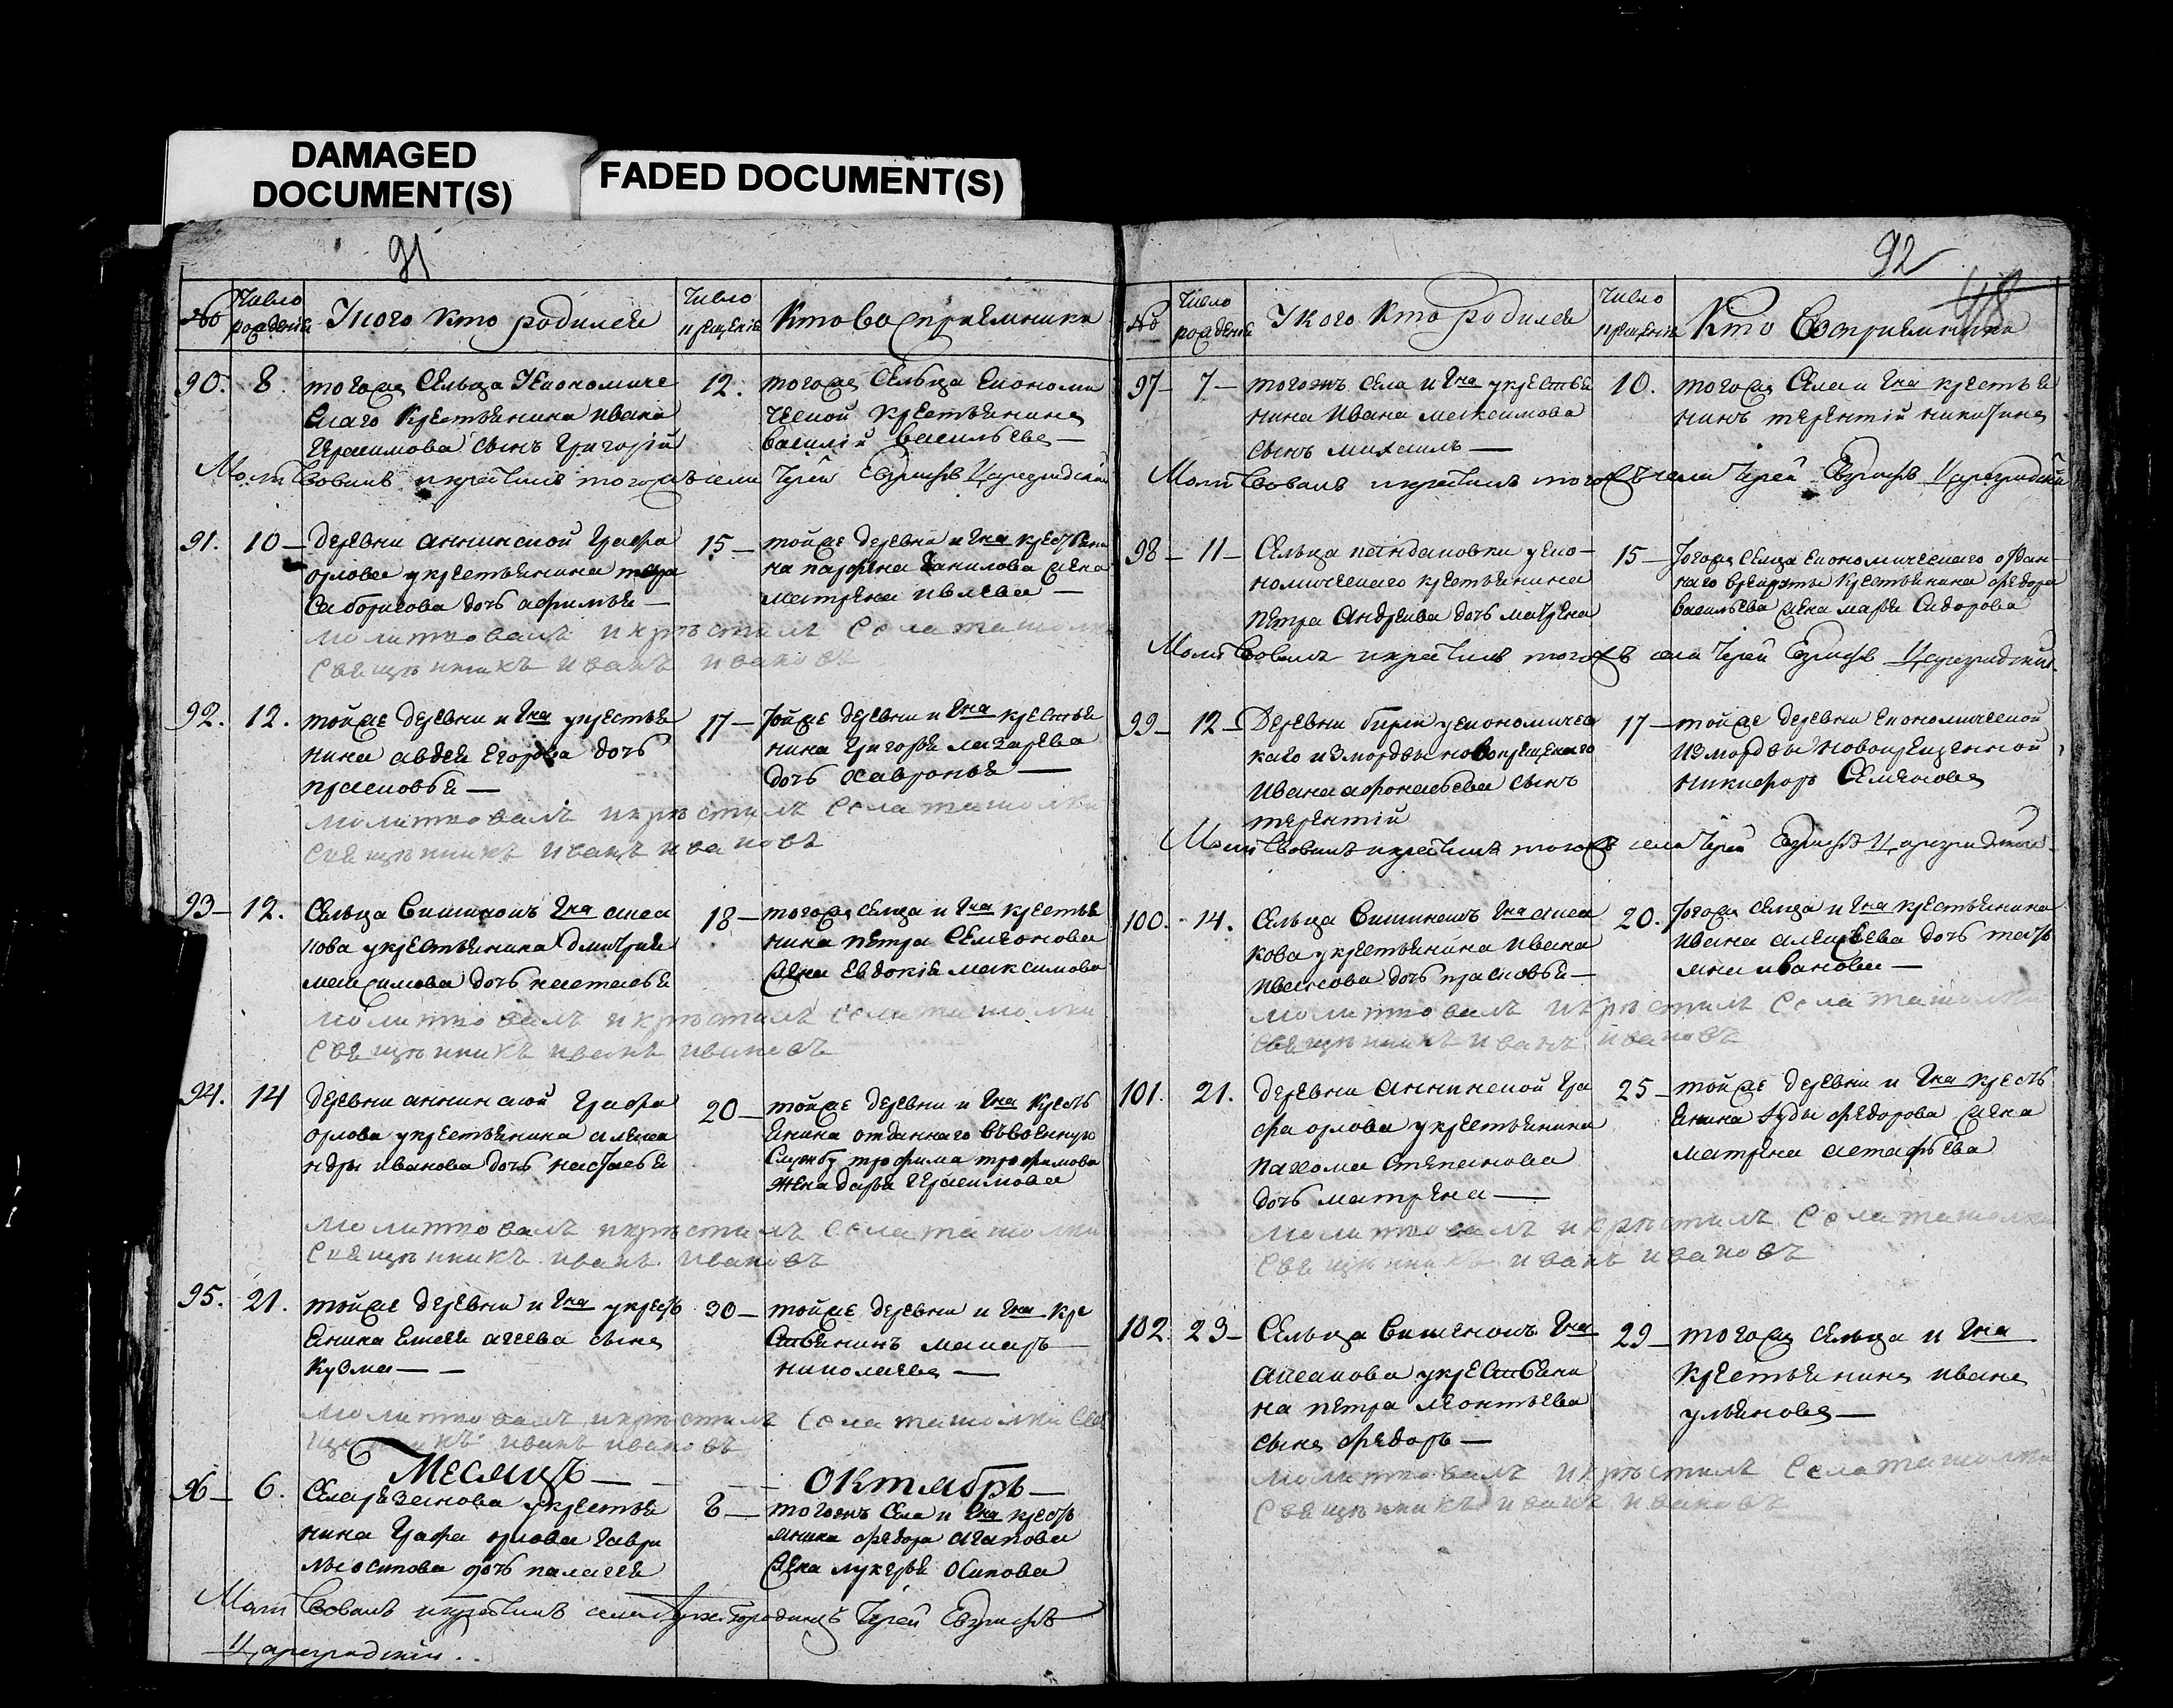 DAMAGED
DOCUMENT(S)
FADED DOCUMENT(S)
91
№
Число
рожденія
У кого кто родился
Число
крещенія
Кто восприемники
90. 8.
тогожъ сельца у економиче
скаго крестьянина Ивана
Герасимова сынъ Григорій
12.
тогожъ сельца економи
ческой крестьянинъ
Василій Васильевъ
Молитвовалъ и крестилъ тогожъ села Іерей Цареградскій
91. 10
деревни Аннинской Графа
Орлова у крестьянина
Борисова дочь Афимья
15
тойже деревни и Гна крестьяни
на Парфена Данилова жена
Матрена Ивлева
молитвовалъ и крѣстилъ села ташолки
свещѣникъ иванъ ивановъ
92. 12.
тойже деревни и Гна у крестья
нина Авдея Егорова дочь
Прасковья
17
тойже деревни и Гна крестья
нина Григорья Лазарева
дочь Хавронья
молитвовалъ и крѣстилъ села ташолки
свещѣникъ иванъ ивановъ
93 12.
Сельца Вишинокъ Гна Акса
кова у крестьянина Дмитрия
Максимова дочь Настасья
18
тогожъ сельца и Гна крестья
нина Петра Семенова
жена Евдокия Максимова
молитвовалъ и крѣстилъ села ташолки
свещѣникъ иванъ ивановъ
94. 14
деревни Аннинской Графа
Орлова у крестьянина Алекса
ндры Иванова дочь Настасья
20
тойже деревни и Гна кресть
янина отданнаго въ военную
службу Трофима Трофимова
жена Дарья Герасимова
молитвовалъ и крѣстилъ села ташолки
свещѣникъ иванъ ивановъ
95. 21.
тойже деревни и Гна у кресть
янина Елисея Агеева сынъ
Кузма
30
тойже деревни и Гна кре
стьянинъ Макаръ
Николаевъ
молитвовалъ и крѣстилъ села ташолки све
щеникъ иванъ ивановъ
Месяцъ Октябрь
96 6.
Села Резанова у крестья
нина Графа Орлова Гаври
лы Осипова дочь Палагея
8
тогожъ села и Гна кресть
янина Федора Агапова
жена Лукерья Осипова
Молитвовалъ и крестилъ села Іерей
Цареградскій
92
48
№
Число
рожденія
У кого кто родился
Число
крещенія
Кто восприемники
97 7
тогожъ села и Гна у крестья
нина Ивана Максимова
сынъ Михаилъ
10.
тогожъ села и Гна крестья
нинъ Терентій Никитинъ
Молитвовалъ и крестилъ тогожъ села Іерей Цареградскій
98 11
Сельца у еко
номическаго крестьянина
Петра Андреива дочь Матрена
15
тогожъ сельца економическаго отдан
наго в рекруты крестьянина Федора
Васильева жена Марья Сидорова
Молитвовалъ и крестилъ тогожъ села Іерей Цареградскій
99 12
Деревни Бирли у економичес
каго из мордвы новокрещенаго
Ивана Афонасьева сынъ
Терентій
17
тойже деревни економической
из мордвы новокрещенной
Никифоръ Семеновъ
Молитвовалъ и крестилъ тогожъ села Іерей Цареградскій
100. 14.
Сельца Вишинокъ Гна Акса
кова у крестьянина Ивана
Иванова дочь Прасковья
20.
тогожъ сельца и Гна крестьянина
Ивана Алексѣева дочь Тать
яна Иванова
молитвовалъ и крѣстилъ села ташолки
свещѣникъ иванъ ивановъ
101. 21.
деревни Аннинской Гра
фа Орлова у крестьянина
Пахома Степанова
дочь Матрена
25
тойже деревни и Гна кресть
янина Іуды Федорова жена
Матрена Астафьева
молитвовалъ и крѣстилъ села ташолки
свещѣникъ иванъ ивановъ
102. 23
Сельца Вишенокъ Гна
Аксакова у крестьяни
на Петра Леонтьева
сынъ Федоръ
29
тогожъ сельца и Гна
крестьянинъ Иванъ
Ульяновъ
молитвовалъ и крѣстилъ села ташолки
свещѣникъ иванъ ивановъ